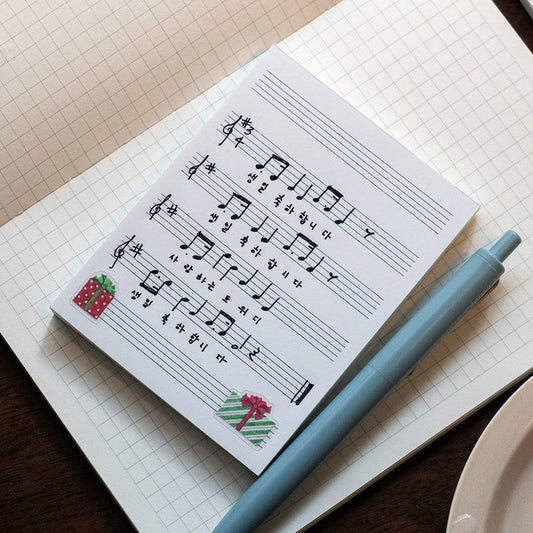 생일 축하합니다
생일 축하합니다
사랑하는 토워디
생일 축하합니다